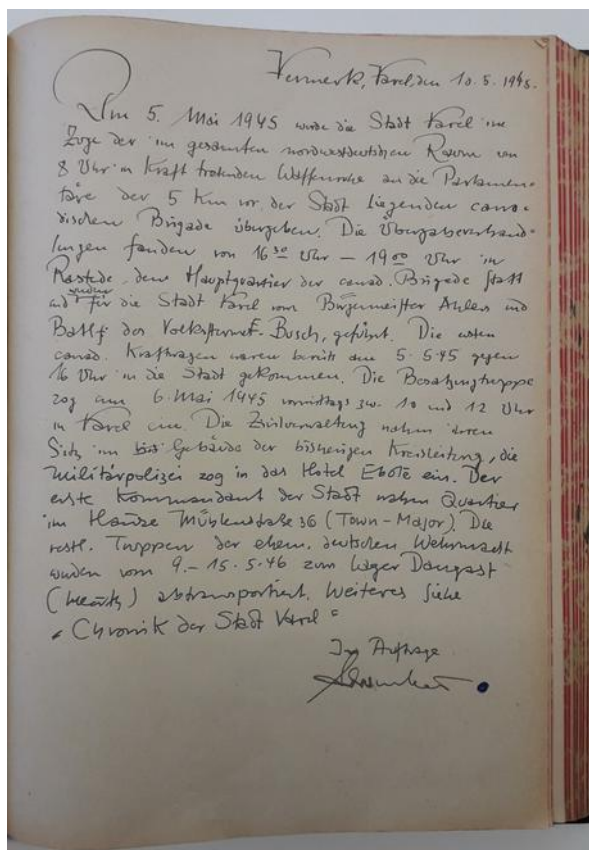 Vermerk, Varel, den 10.5.1945.
Am 5. Mai 1945 wurde die Stadt Varel im
Zuge der im gesamten nordwestdeutschen Raum um
8 Uhr in Kraft tretenden Waffenruhe an die Parlamen-
täre der 5 Km vor der Stadt liegenden cana-
dischen Brigade übergeben. Die Übergabeverhand-
lungen fanden von 16 30 Uhr – 19 00 Uhr in
Rastede, dem Hauptquartier der canad. Brigade statt
und wurden für die Stadt Varel vom Bürgermeister Ahlers und
Batlf. des Volkssturmes - Busch, geführt. Die ersten
canad. Kraftwagen waren bereits am 5.5.45 gegen
16 Uhr in die Stadt gekommen. Die Besatzungstruppe
zog am 6. Mai 1945 vormittags zw. 10 und 12 Uhr
in Varel ein. Die Zivilverwaltung nahm ihren
Sitz im Gebäude der bisherigen Kreisleitung, die
Militärpolizei zog in das Hotel Ebole ein. Der
erste Kommandant der Stadt nahm Quartier
im Hause Mühlenstraße 36 (Town-Major). Die
restl. Truppen der ehem. deutschen Wehrmacht
wurden vom 9.–15.5.46 zum Lager Dangast
abtransportiert. Weiteres siehe
"Chronik der Stadt Varel"
Im Auftrage